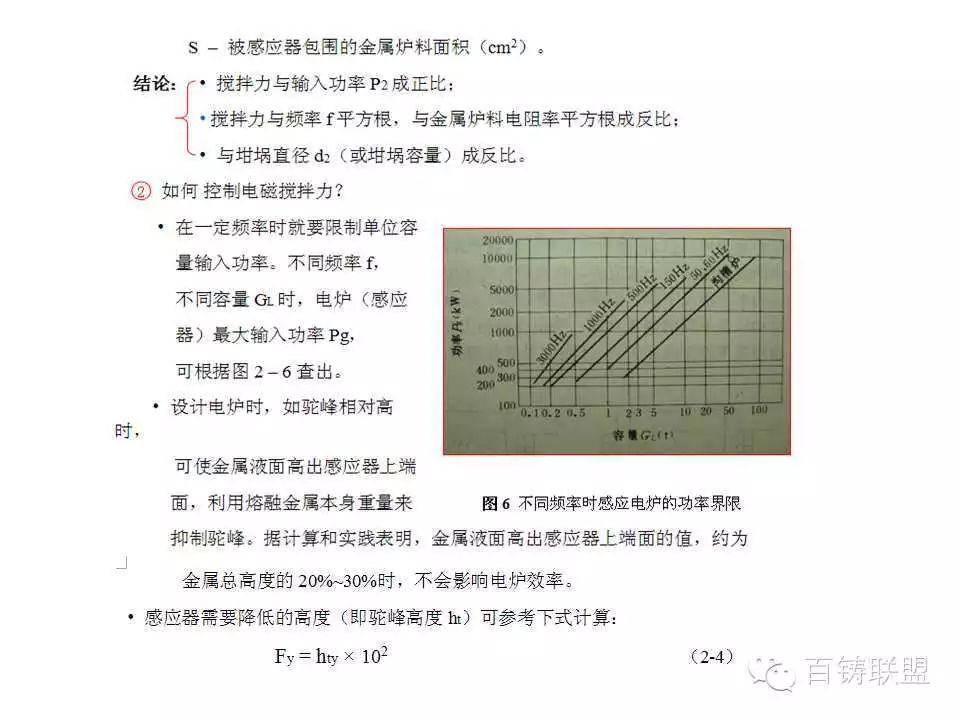 S – 被感应器包围的金属炉料面积（cm²）。
结论： • 搅拌力与输入功率 P2 成正比；
• 搅拌力与频率 f 平方根，与金属炉料电阻率平方根成反比；
• 与坩埚直径 d2（或坩埚容量）成反比。
② 如何 控制电磁搅拌力？
• 在一定频率时就要限制单位容
量输入功率。不同频率 f，
不同容量 GL 时，电炉（感应
器）最大输入功率 Pg，
可根据图 2 – 6 查出。
• 设计电炉时，如驼峰相对高
时，
可使金属液面高出感应器上端
面，利用熔融金属本身重量来
抑制驼峰。据计算和实践表明，金属液面高出感应器上端面的值，约为
金属总高度的 20%~30%时，不会影响电炉效率。
• 感应器需要降低的高度（即驼峰高度 ht）可参考下式计算：
Fy = hty × 10² （2-4）
功率 (kW)
20000
10000
5000
2000
1000
500
400
300
200
100
3000Hz
1000Hz
500Hz
150Hz
50,60Hz
沟槽炉
0.1 0.2 0.5 1 2 3 5 10 20 50 100
容量 GL(t)
图 6 不同频率时感应电炉的功率界限
百铸联盟